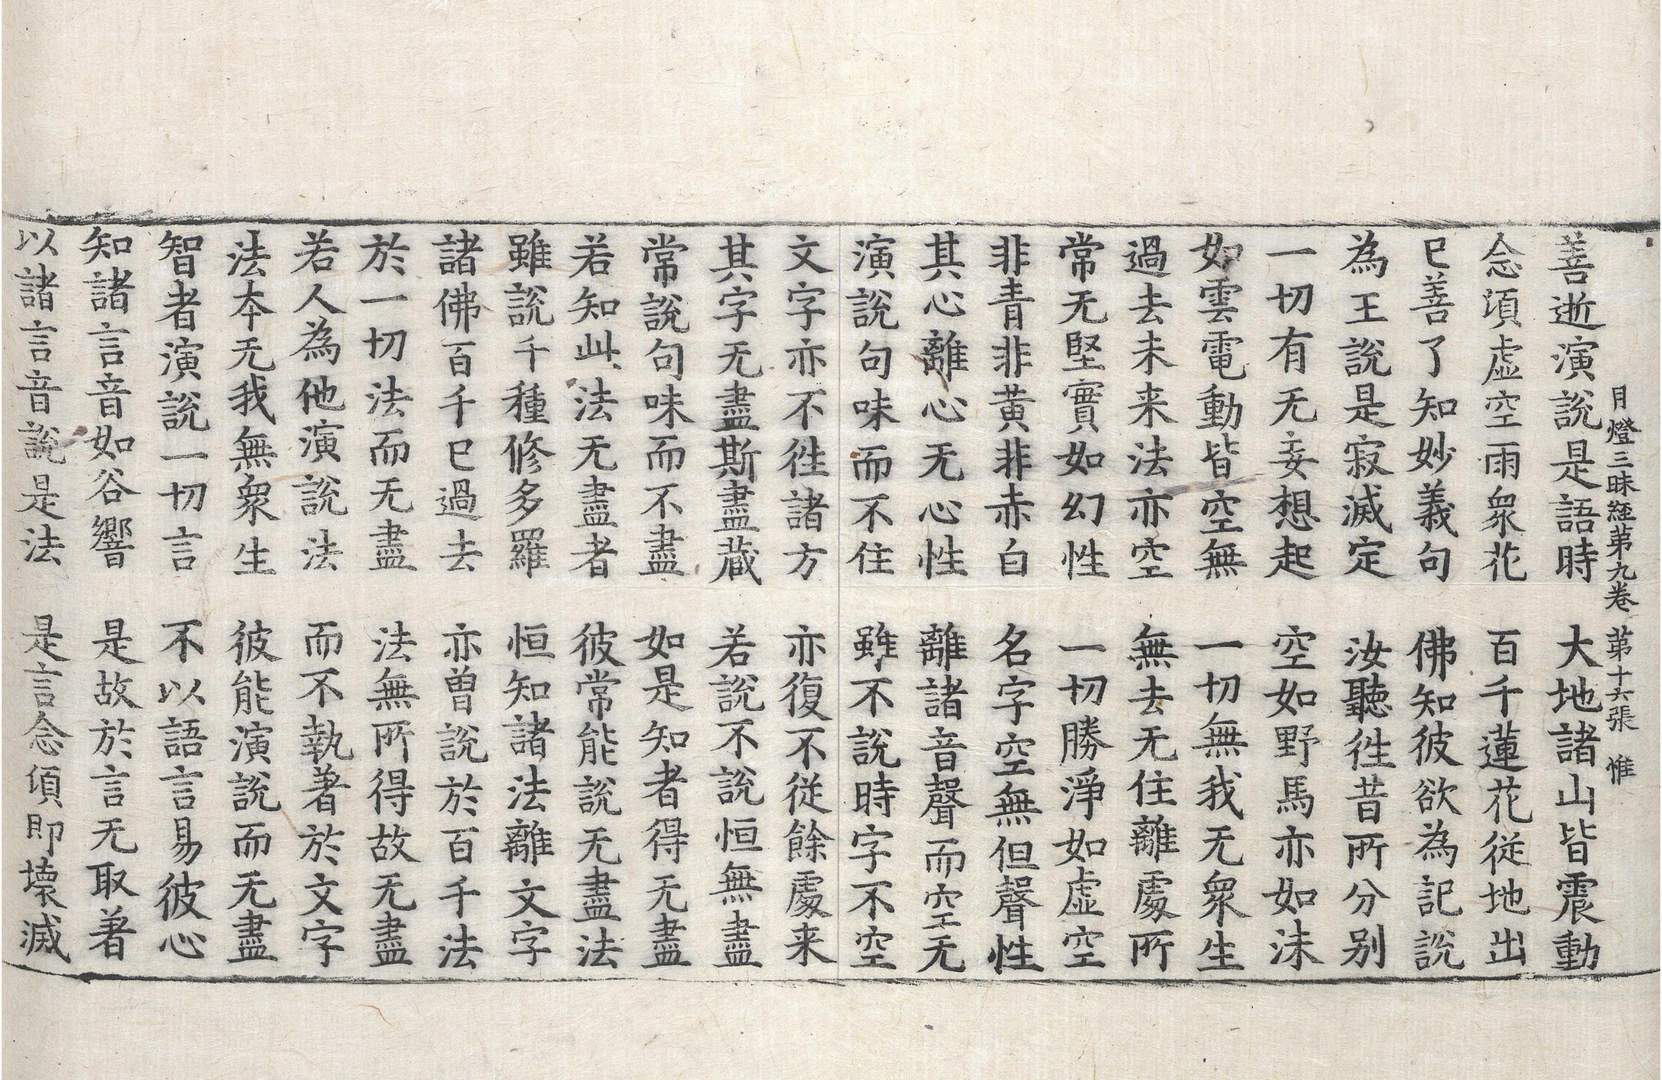 月燈三昧經第九卷 第十六張 惟
善逝演說是語時 大地諸山皆震動
念頃虛空雨衆花 百千蓮花從地出
巳善了知妙義句 佛知彼欲為記說
為王說是寂滅定 汝聽徃昔所分別
一切有无妄想起 空如野馬亦如沫
如雲電動皆空無 一切無我无衆生
過去未来法亦空 無去无住離處所
常无堅實如幻性 一切勝淨如虛空
非青非黃非赤白 名字空無但聲性
其心離心无心性 離諸音聲而空无
演說句味而不住 雖不說時字不空
文字亦不徃諸方 亦復不從餘處来
其字无盡斯盡蔵 若說不說恒無盡
常說句味而不盡 如是知者得无盡
若知此法无盡者 彼常能說无盡法
雖說千種修多羅 恒知諸法離文字
諸佛百千巳過去 亦曽說於百千法
於一切法而无盡 法無所得故无盡
若人為他演說法 而不執著於文字
法本无我無衆生 彼能演說而无盡
智者演說一切言 不以語言易彼心
知諸言音如谷響 是故於言无取著
以諸言音說是法 是言念頃即壞滅